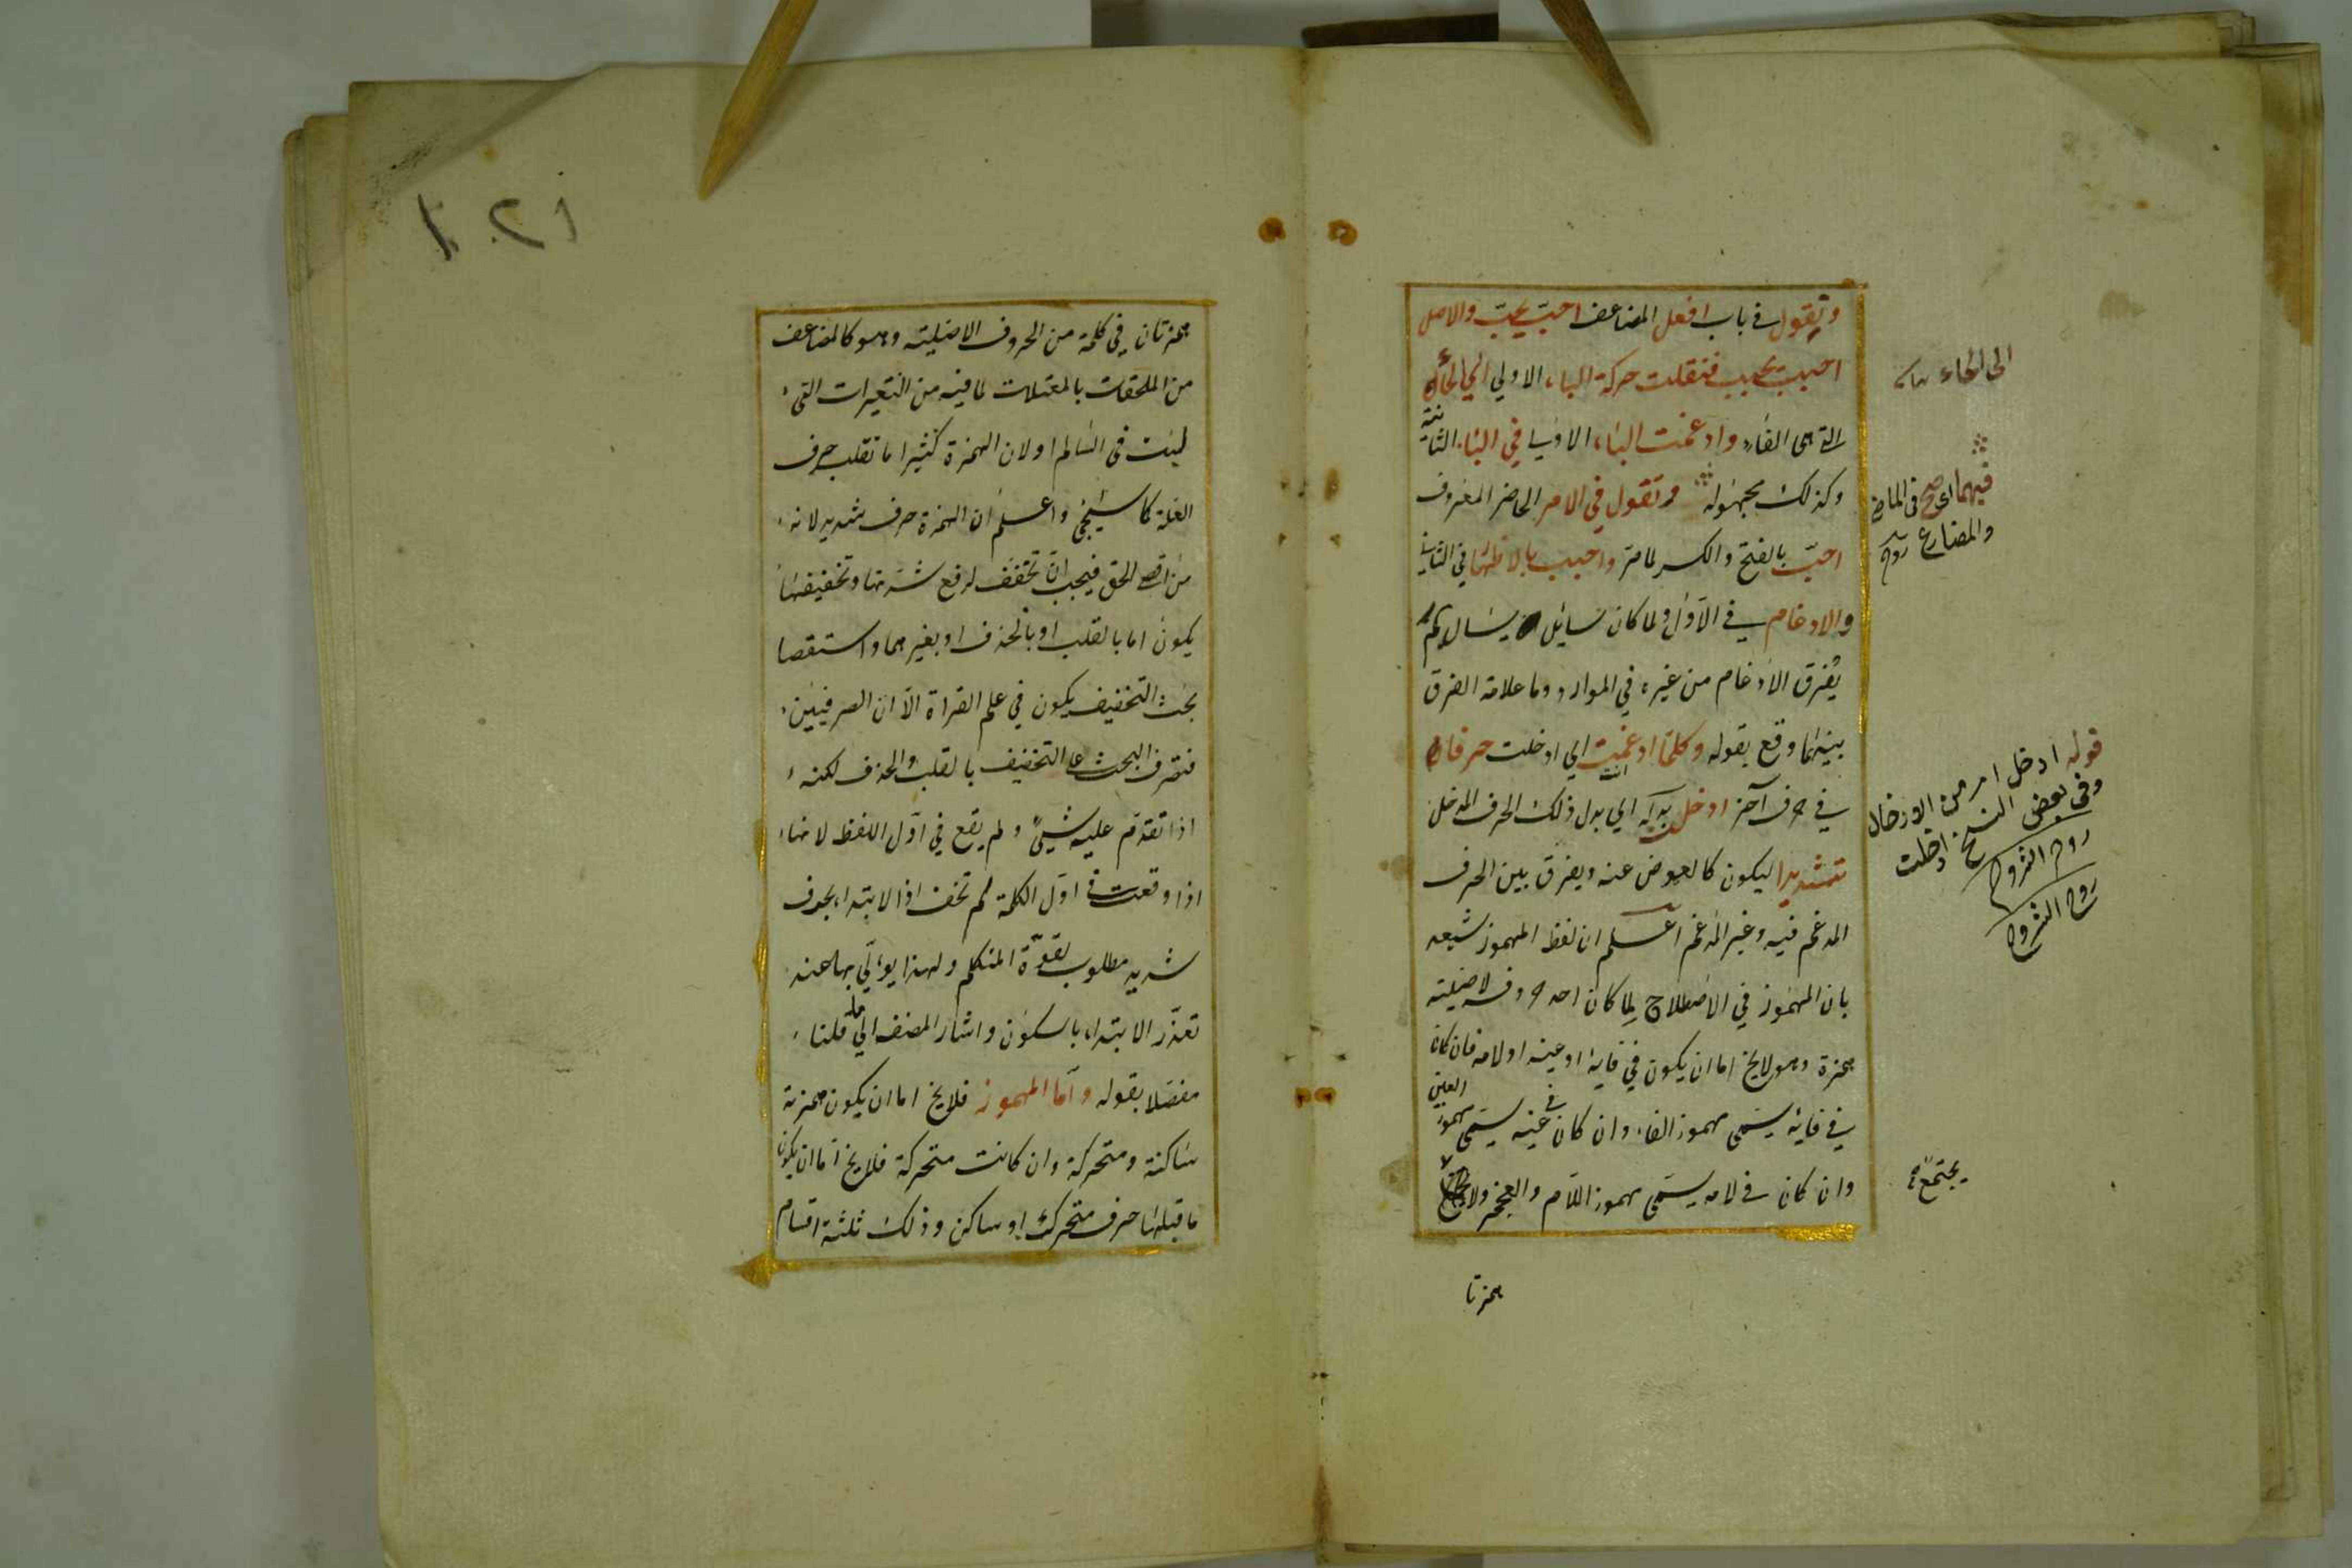 وتقول في باب افعل المضاعف احبّ يحبّ والاصل
احبب يحبب فنقلت حركة الباء الاولي الي الحاء
التي هي الفاء وادغمت الباء الاولي في الباء الثانية
وكذلك مجهوله وتقول في الامر الحاضر المعروف
احبّ بالفتح والكسر لما مرّ واحبب بالاظهار في الثاني
والادغام في الاوّل ولما كان سائل يسال بم
يُفرق الادغام من غيره في الموارد وما علامة الفرق
بينهما وقع بقوله وكلمّا ادغمت اي ادخلت حرفا
في حرف آخر ادخل بدله اي بدل ذلك الحرف المدخل
تشديدا ليكون كالعوض عنه ويفرق بين الحرف
المدغم فيه وغير المدغم اعلم ان لفظ المهموز
بان المهموز في الاصطلاح لِما كان احد حروفه الاصلية
همزة وهو لايخ اما ان يكون في فايه او عينه او لامه فان كان
في فايه يسمّى مهموز الفاء وان كان في عينه يسمّى مهموز العين
وان كان في لامه يسمّى مهموز اللام والعجز ولا
همزتا
الى الحاء
فيهما اى صح فى الماضى
والمضارع روح
قوله ادخل امر من الادخال
وفى بعض النسخ ادخلت
روح الشروح
روح الشروح
يجتمع
١٢١
همزتان في كلمة من الحروف الاصلية وهو كالمضاعف
من الملحقات بالمعتلات لما فيه من التغيرات التي
ليست في السالم او لان الهمزة كثيرا ما تقلب حرف
العلة كما سيجئ واعلم ان الهمزة حرف شديد لانه
من اقصى الحلق فيجب ان تخفف لرفع شدتها وتخفيفها
يكون اما بالقلب او بالحذف او بغيرهما واستقصا
بحث التخفيف يكون في علم القراة الّا ان الصرفيين
البحث على التخفيف بالقلب والحذف لكنه
اذا تقدّم عليه شيئ ولم يقع في اوّل اللفظ لانها
اذا وقعت في اوّل الكلمة لم تخف اذ الابتداء بحرف
شديد مطلوب لقوّة المتكلم ولهذا يؤتي بها عند
تعذّر الابتداء بالسكون واشار المصنف الي ما قلنا
مفصّلا بقوله وامّا المهموز فلايخ اما ان يكون همزته
ساكنة ومتحركة وان كانت متحركة فلايخ امّا ان يكون
ما قبلها حرف متحرك او ساكن وذلك ثلثة اقسام